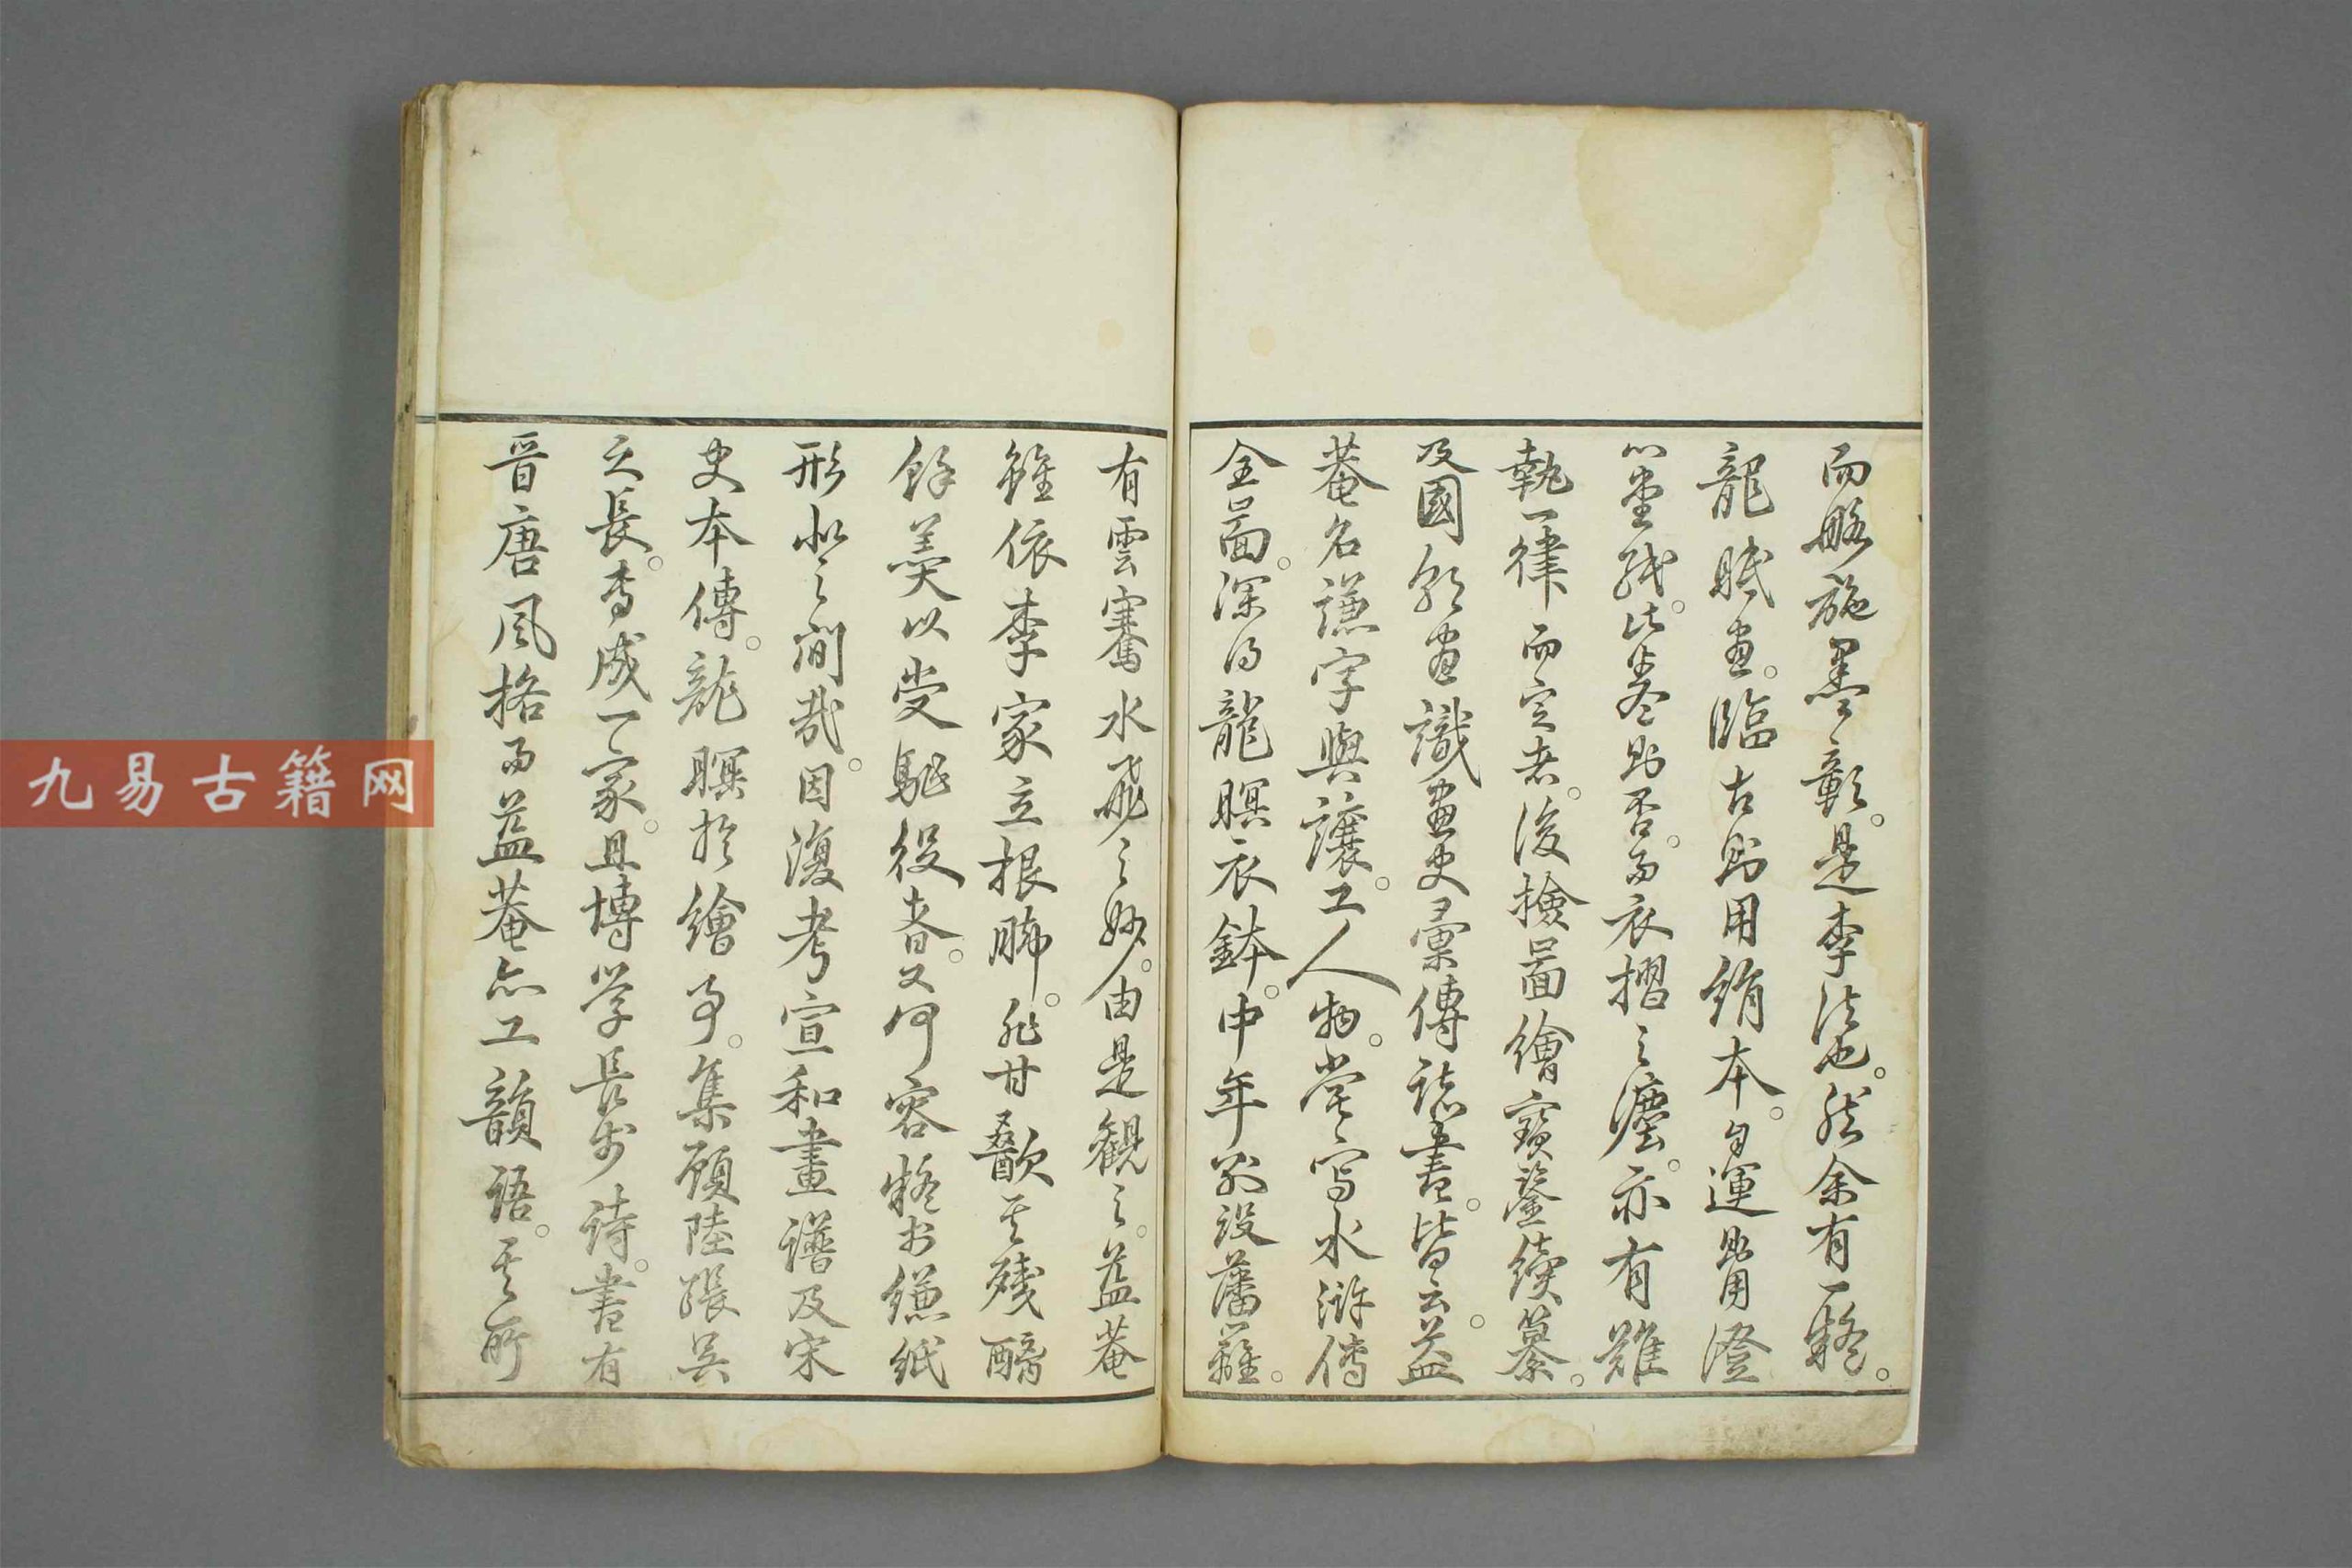 而略施墨彰。是李法也。然余有一疑。
龍眠畫。臨古則用絹本。自運則用澄
心堂紙。此葢則否。而衣摺之瀍。亦有難
執一律而定者。後撿啚繪寳鑒續纂。
及國朝畫識畫史彙傳諸書。皆云。益
菴名謙字與讓。工人物。嘗寫水滸傳
全啚。深得龍眠衣鉢。中年別設藩籬。
有雲騫水飛之妙。由是観之。益菴
雖依李家立根腳。非甘歠其殘醑
餘羹以受馳役者。又何容疑於縑紙
形狀之間哉。因復考宣和畫譜及宋
史本傳。龍眠於繪事。集顧陸張吳
之長。秀成一家。且博学長於詩。書有
晉唐風格。而益菴亦工韻語。其所
九易古籍网